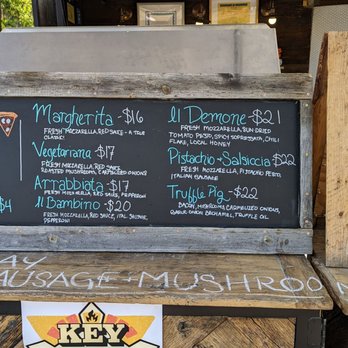 Margherita -$16
FRESH MOZZARELLA, RED SAUCE - A TRUE
CLASSIC!
Vegetariana -$17
FRESH MOZZARELLA, RED SAUCE,
ROASTED MUSHROOMS, CARAMELIZED ONIONS
Arrabbiata -$17
FRESH MOZZARELLA, RED SAUCE, PEPPERONI
Il Bambino -$20
FRESH MOZZARELLA, RED SAUCE, ITAL. SAUSAGE,
PEPPERONI
$4
Il Demone -$21
FRESH MOZZARELLA, SUN DRIED
TOMATO PESTO, SPICY SOPRESSATA, CHILI
FLAKE, LOCAL HONEY
Pistachio + Salsiccia $22
FRESH MOZZARELLA, PISTACHIO PESTO,
ITALIAN SAUSAGE
Truffle Pig -$22
BACON, MUSHROOMS, CARAMELIZED ONIONS,
ONION BECHAMEL, TRUFFLE OIL
AY
AUSAGE + MUSHROOM
KEY